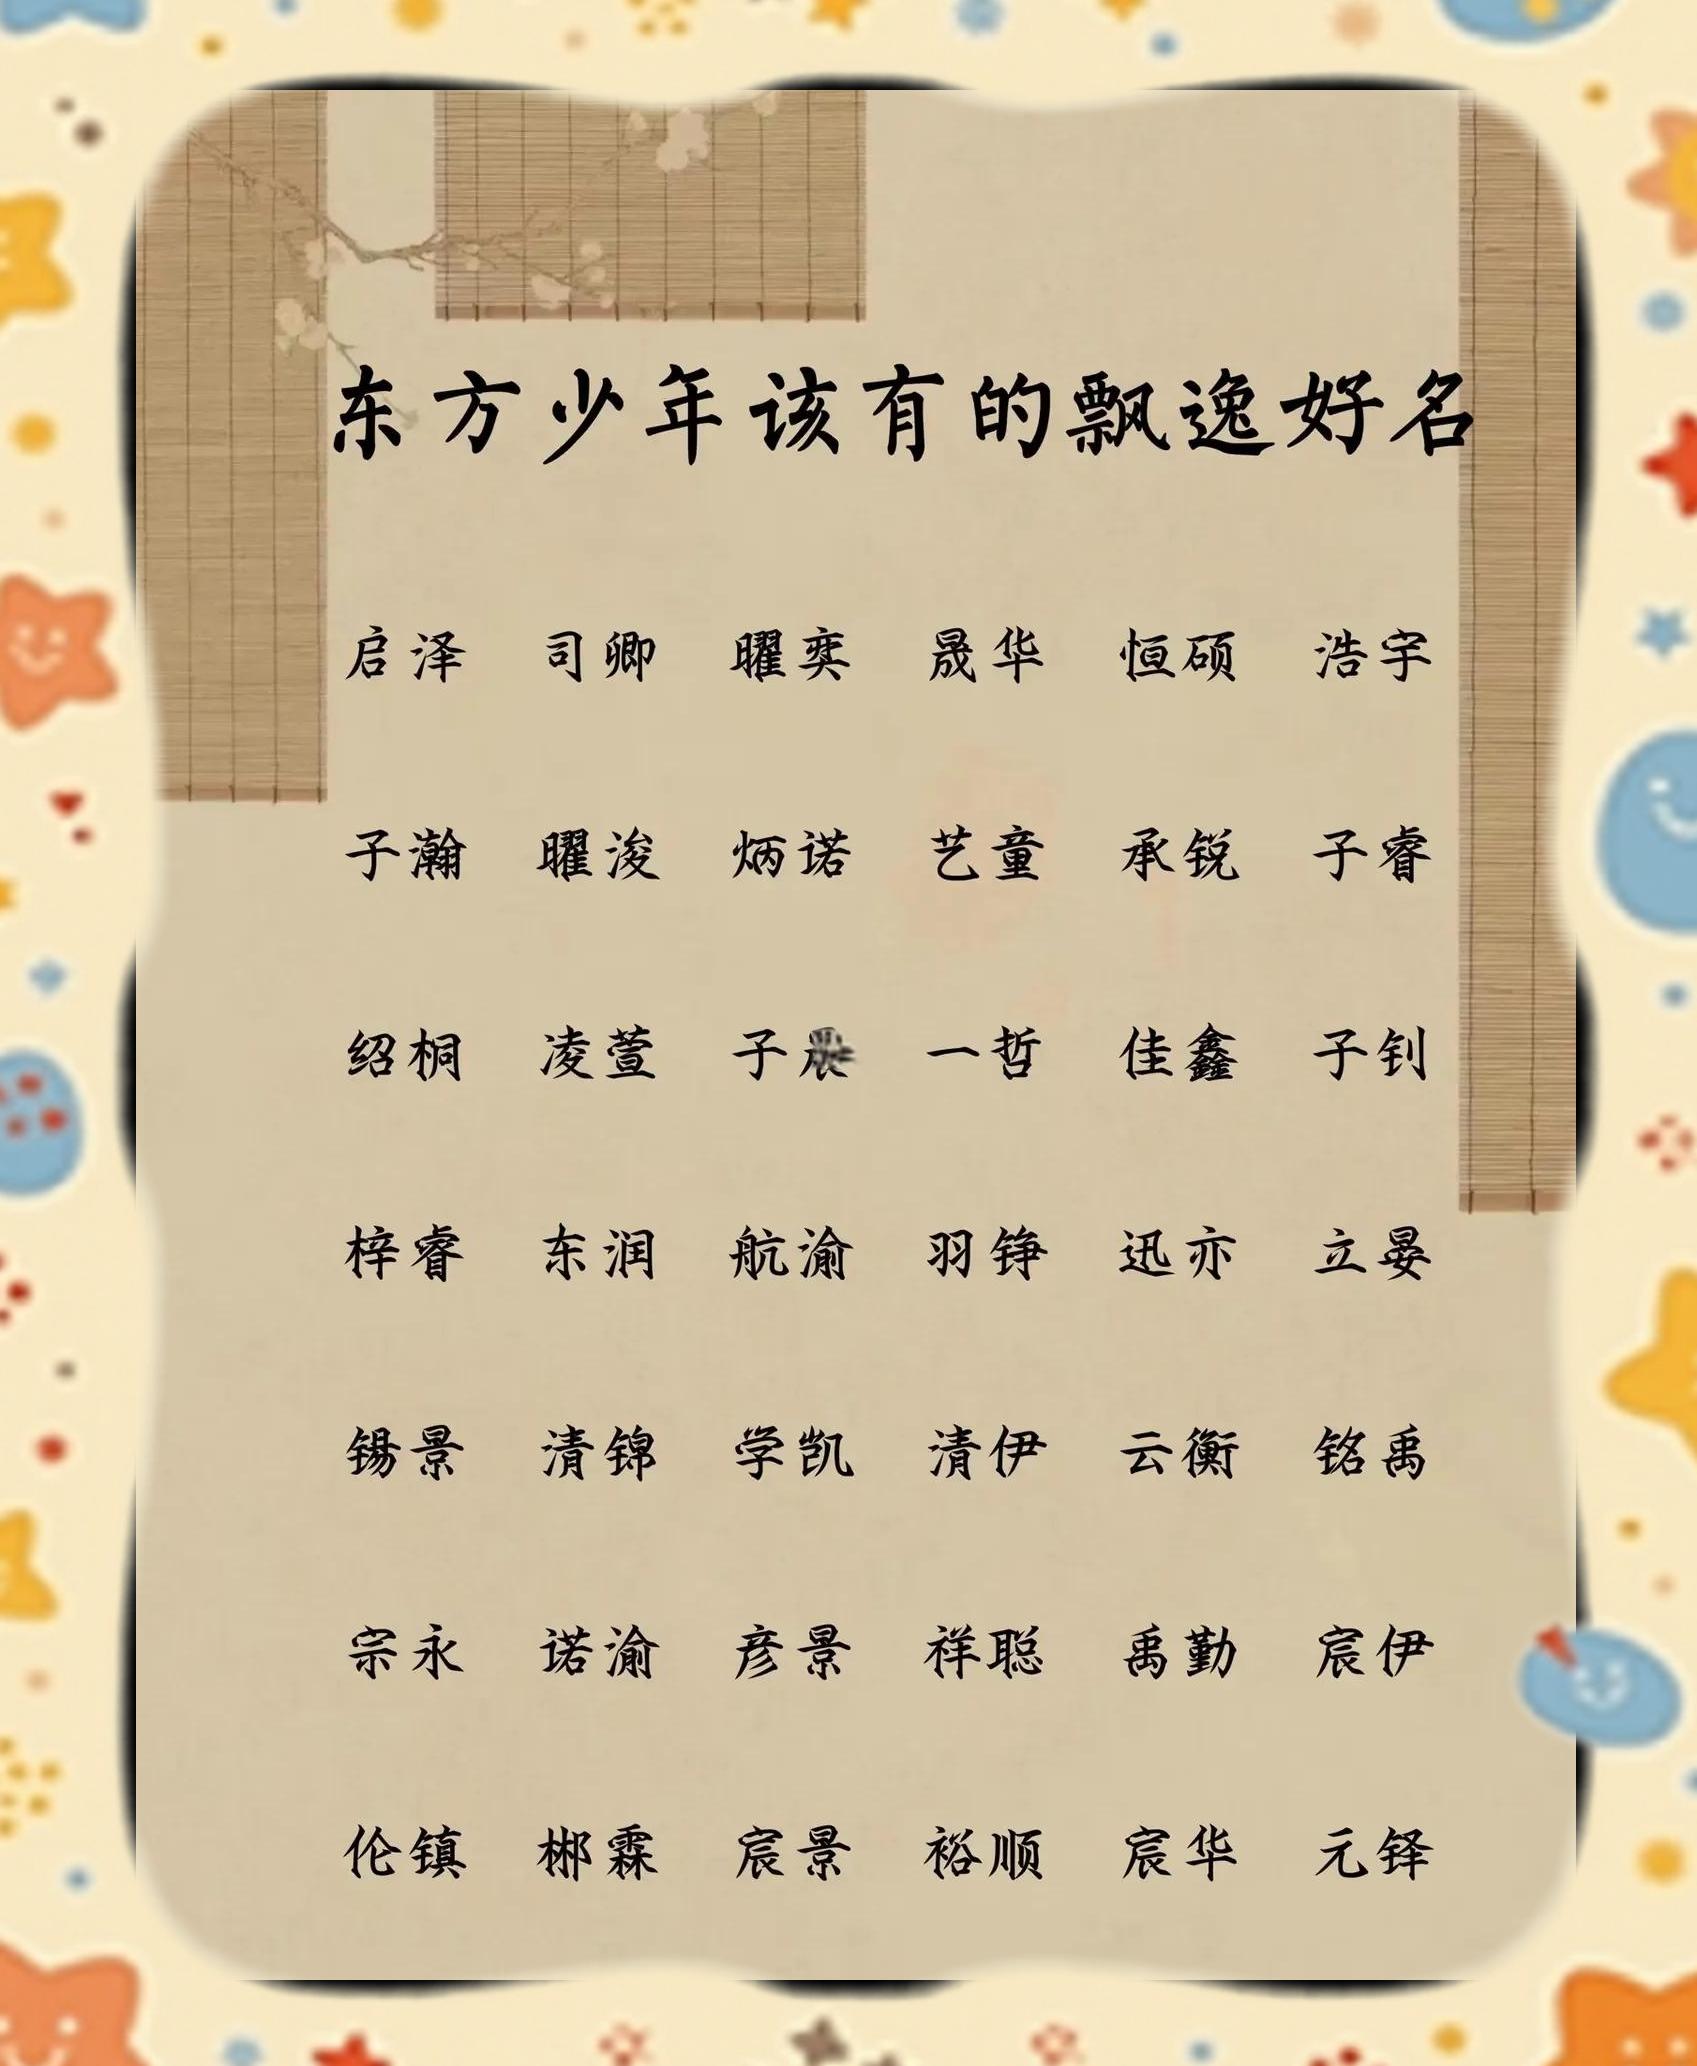 东方少年该有的飘逸好名
启泽 司卿 曜奕 晟华 恒硕 浩宇
子瀚 曜浚 炳诺 艺童 承锐 子睿
绍桐 凌萱 一哲 佳鑫 子钊
梓睿 东润 航渝 羽铮 迅亦 立晏
锡景 清锦 学凯 清伊 云衡 铭禹
宗永 诺渝 彦景 祥聪 禹勤 宸伊
伦镇 郴霖 宸景 裕顺 宸华 元铎